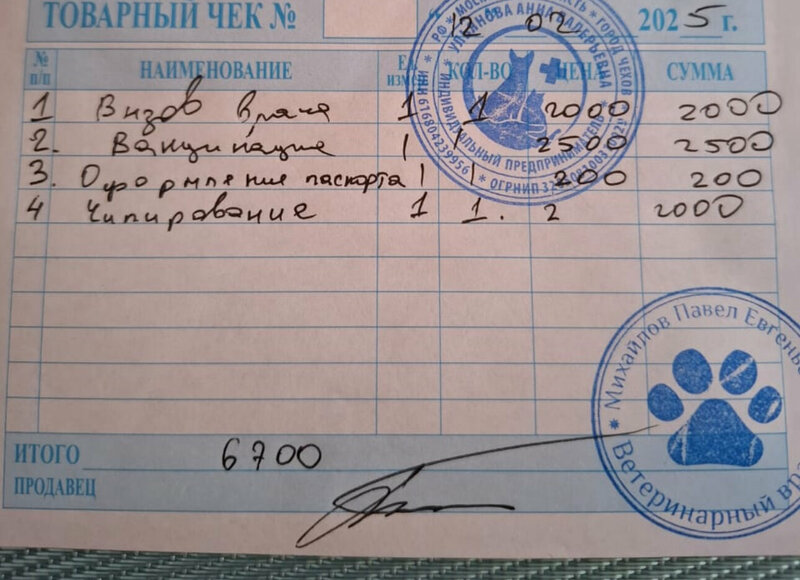 ТОВАРНЫЙ ЧЕК №
12 02 2025 г.
№ п/п НАИМЕНОВАНИЕ Ед. изм КОЛ-ВО ЦЕНА СУММА
1 Вызов врача 1 1 2000 2000
2. Вакцинация 1 1 2500 2500
3. Оформление паспорта 1 1 200 200
4 Чипирование 1 1. 2 2000
ИТОГО 6700
ПРОДАВЕЦ
РФ * МОСКОВСКАЯ ОБЛАСТЬ * ГОРОД ЧЕХОВ
АННА ВАЛЕРЬЕВНА
ИНДИВИДУАЛЬНЫЙ ПРЕДПРИНИМАТЕЛЬ
ИНН
* ОГРНИП
* Михайлов Павел Евгенье
Ветеринарный вр